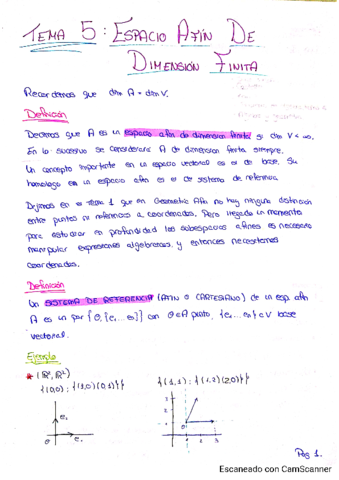 TEMA 5: ESPACIO AFÍN DE
DIMENSIÓN FINITA
Recordemos que dim A = dim V.
Definición
Decimos que A es un espacio afín de dimensión finita si dim V < ∞.
En lo sucesivo se considerará A de dimensión finita siempre.
Un concepto importante en un espacio vectorial es el de base. Su
homólogo en un espacio afín es el de sistema de referencia.
Dijimos en el Tema 1 que en Geometría Afín no hay ninguna distinción
entre puntos ni referencia a coordenadas. Pero llegado un momento
para estudiar en profundidad los subespacios afines es necesario
manipular expresiones algebraicas, y entonces necesitamos
coordenadas.
Definición
Un SISTEMA DE REFERENCIA (AFÍN O CARTESIANO) de un esp. afín
A es un par {O, {e₁ ... en}} con O∈A punto, {e₁ ... en} ⊂ V base
vectorial.
Ejemplo
* (R², R²)
{(0,0); {(1,0)(0,1)}} {(1,1); {(1,2)(2,0)}}
e₂
O e₁
3
2
1
1 2 3
Pág 1.
Escaneado con CamScanner